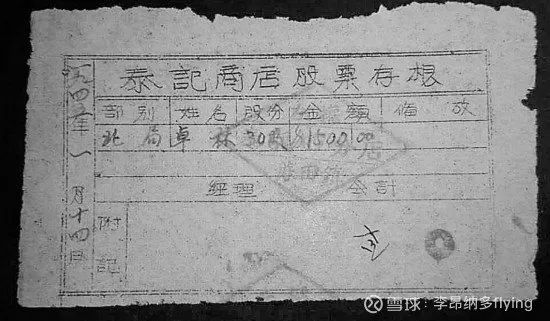 泰記商店股票存根
部别 姓名 股份 金額 備攷
北局 卓林 30股 $1500.00
經理 会計
附記
一九四六年一月十四日
雪球：李昂纳多flying